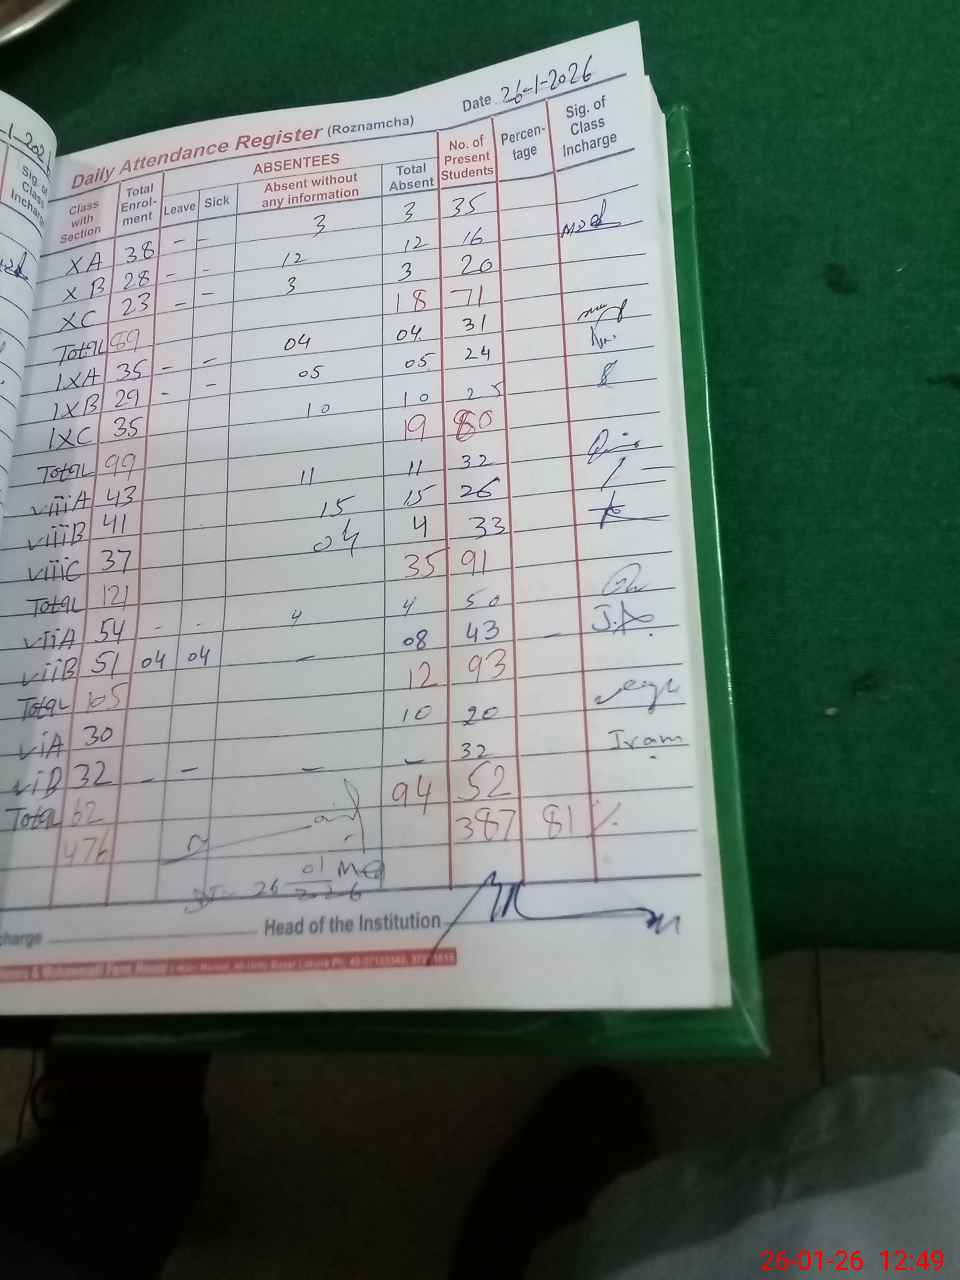 Date 26-1-2026
Daily Attendance Register (Roznamcha)
Class with Section
Total Enrol-ment
ABSENTEES
Leave
Sick
Absent without any information
Total Absent
No. of Present Students
Percen-tage
Sig. of Class Incharge
XA 38 - - 3 3 35
XB 28 - - 12 12 16
XC 23 - - 3 3 20
Total 89 18 71
IXA 35 - - 04 04 31
IXB 29 - - 05 05 24
IXC 35 10 10 25
Total 99 19 80
viiiA 43 11 11 32
viiiB 41 15 15 26
viiiC 37 04 4 33
Total 121 35 91
viiA 54 - - 4 4 50
viiB 51 04 04 - 08 43 -
Total 105 12 93
viA 30 10 20
viB 32 - - - - 32 Iram
Total 62 94 52
476 387 81 %
26 01 2026
charge Head of the Institution
26-01-26 12:49